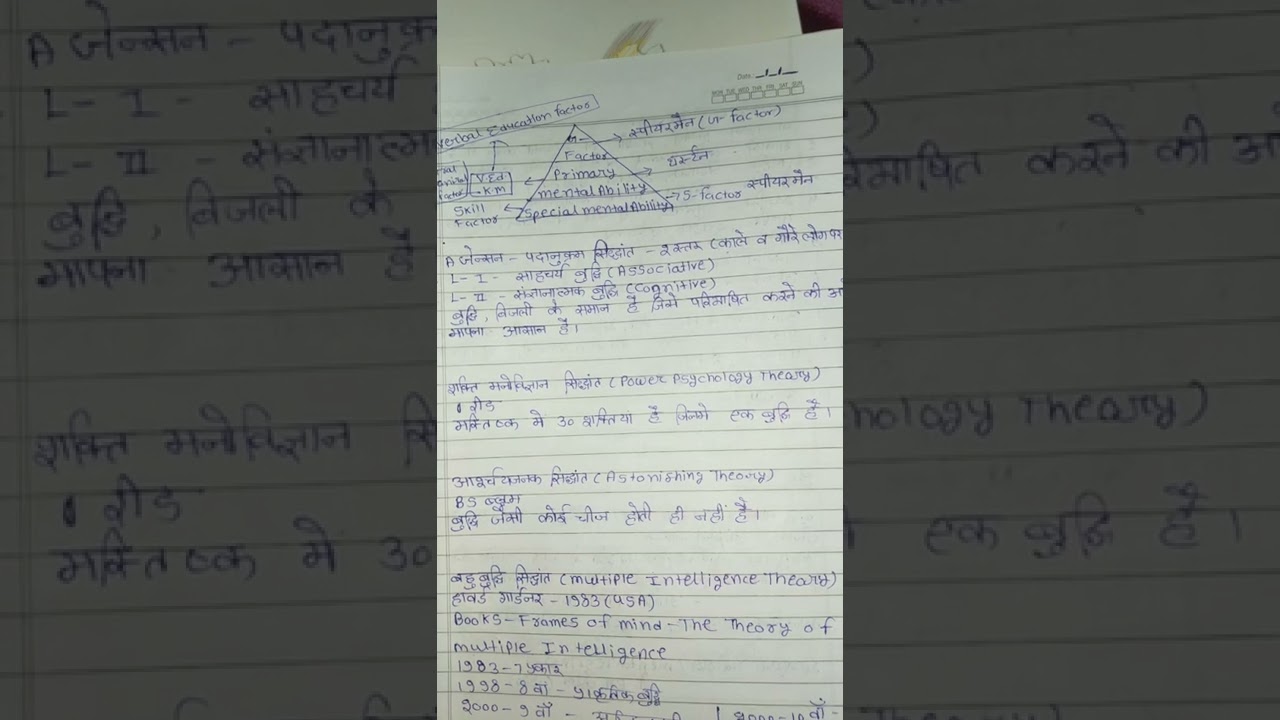 Date
MON TUE WED THU FRI SAT SUN
Verbal Education factor
स्पीयरमैन (G-factor)
Factor
थर्स्टन
V.Ed
K.M
Primary
mental Ability
S-factor स्पीयरमैन
Skill
Factor
Special mental Ability
A जेन्सन - पदानुक्रम सिद्धांत - 2 स्तर (काले व गौरे लोग पर
L- I - साहचर्य बुद्धि (Associative)
L- II - संज्ञानात्मक बुद्धि (cognitive)
बुद्धि, बिजली के समान है जिसे परिभाषित करने की
मापना आसान है।
शक्ति मनोविज्ञान सिद्धांत (Power Psychology Theory)
रीड
मस्तिष्क में 30 शक्तिया है जिनमे एक बुद्धि है।
आश्चर्यजनक सिद्धांत (Astonishing Theory)
BS ब्लूम
बुद्धि जैसी कोई चीज होती ही नहीं है।
बहुबुद्धि सिद्धांत (multiple Intelligence Theory)
हावर्ड गार्डनर - 1983 (USA)
Books - Frames of mind - The Theory of
multiple Intelligence
1983 - 7 प्रकार
1998 - 8 वाँ - प्राकृतिक बुद्धि
2000 - 9 वाँ - 2000 - 10 वाँ -